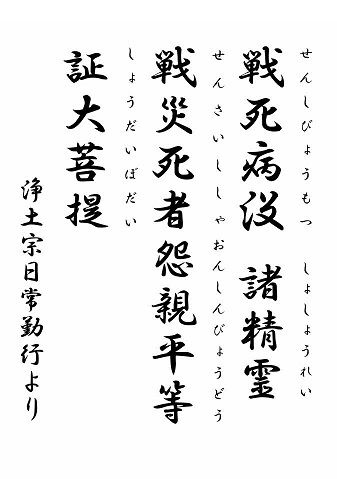 せんしびょうもつ　しょしょうれい
戦死病没　諸精霊
せんさいししゃおんしんびょうどう
戦災死者怨親平等
しょうだいぼだい
証大菩提
浄土宗日常勤行より